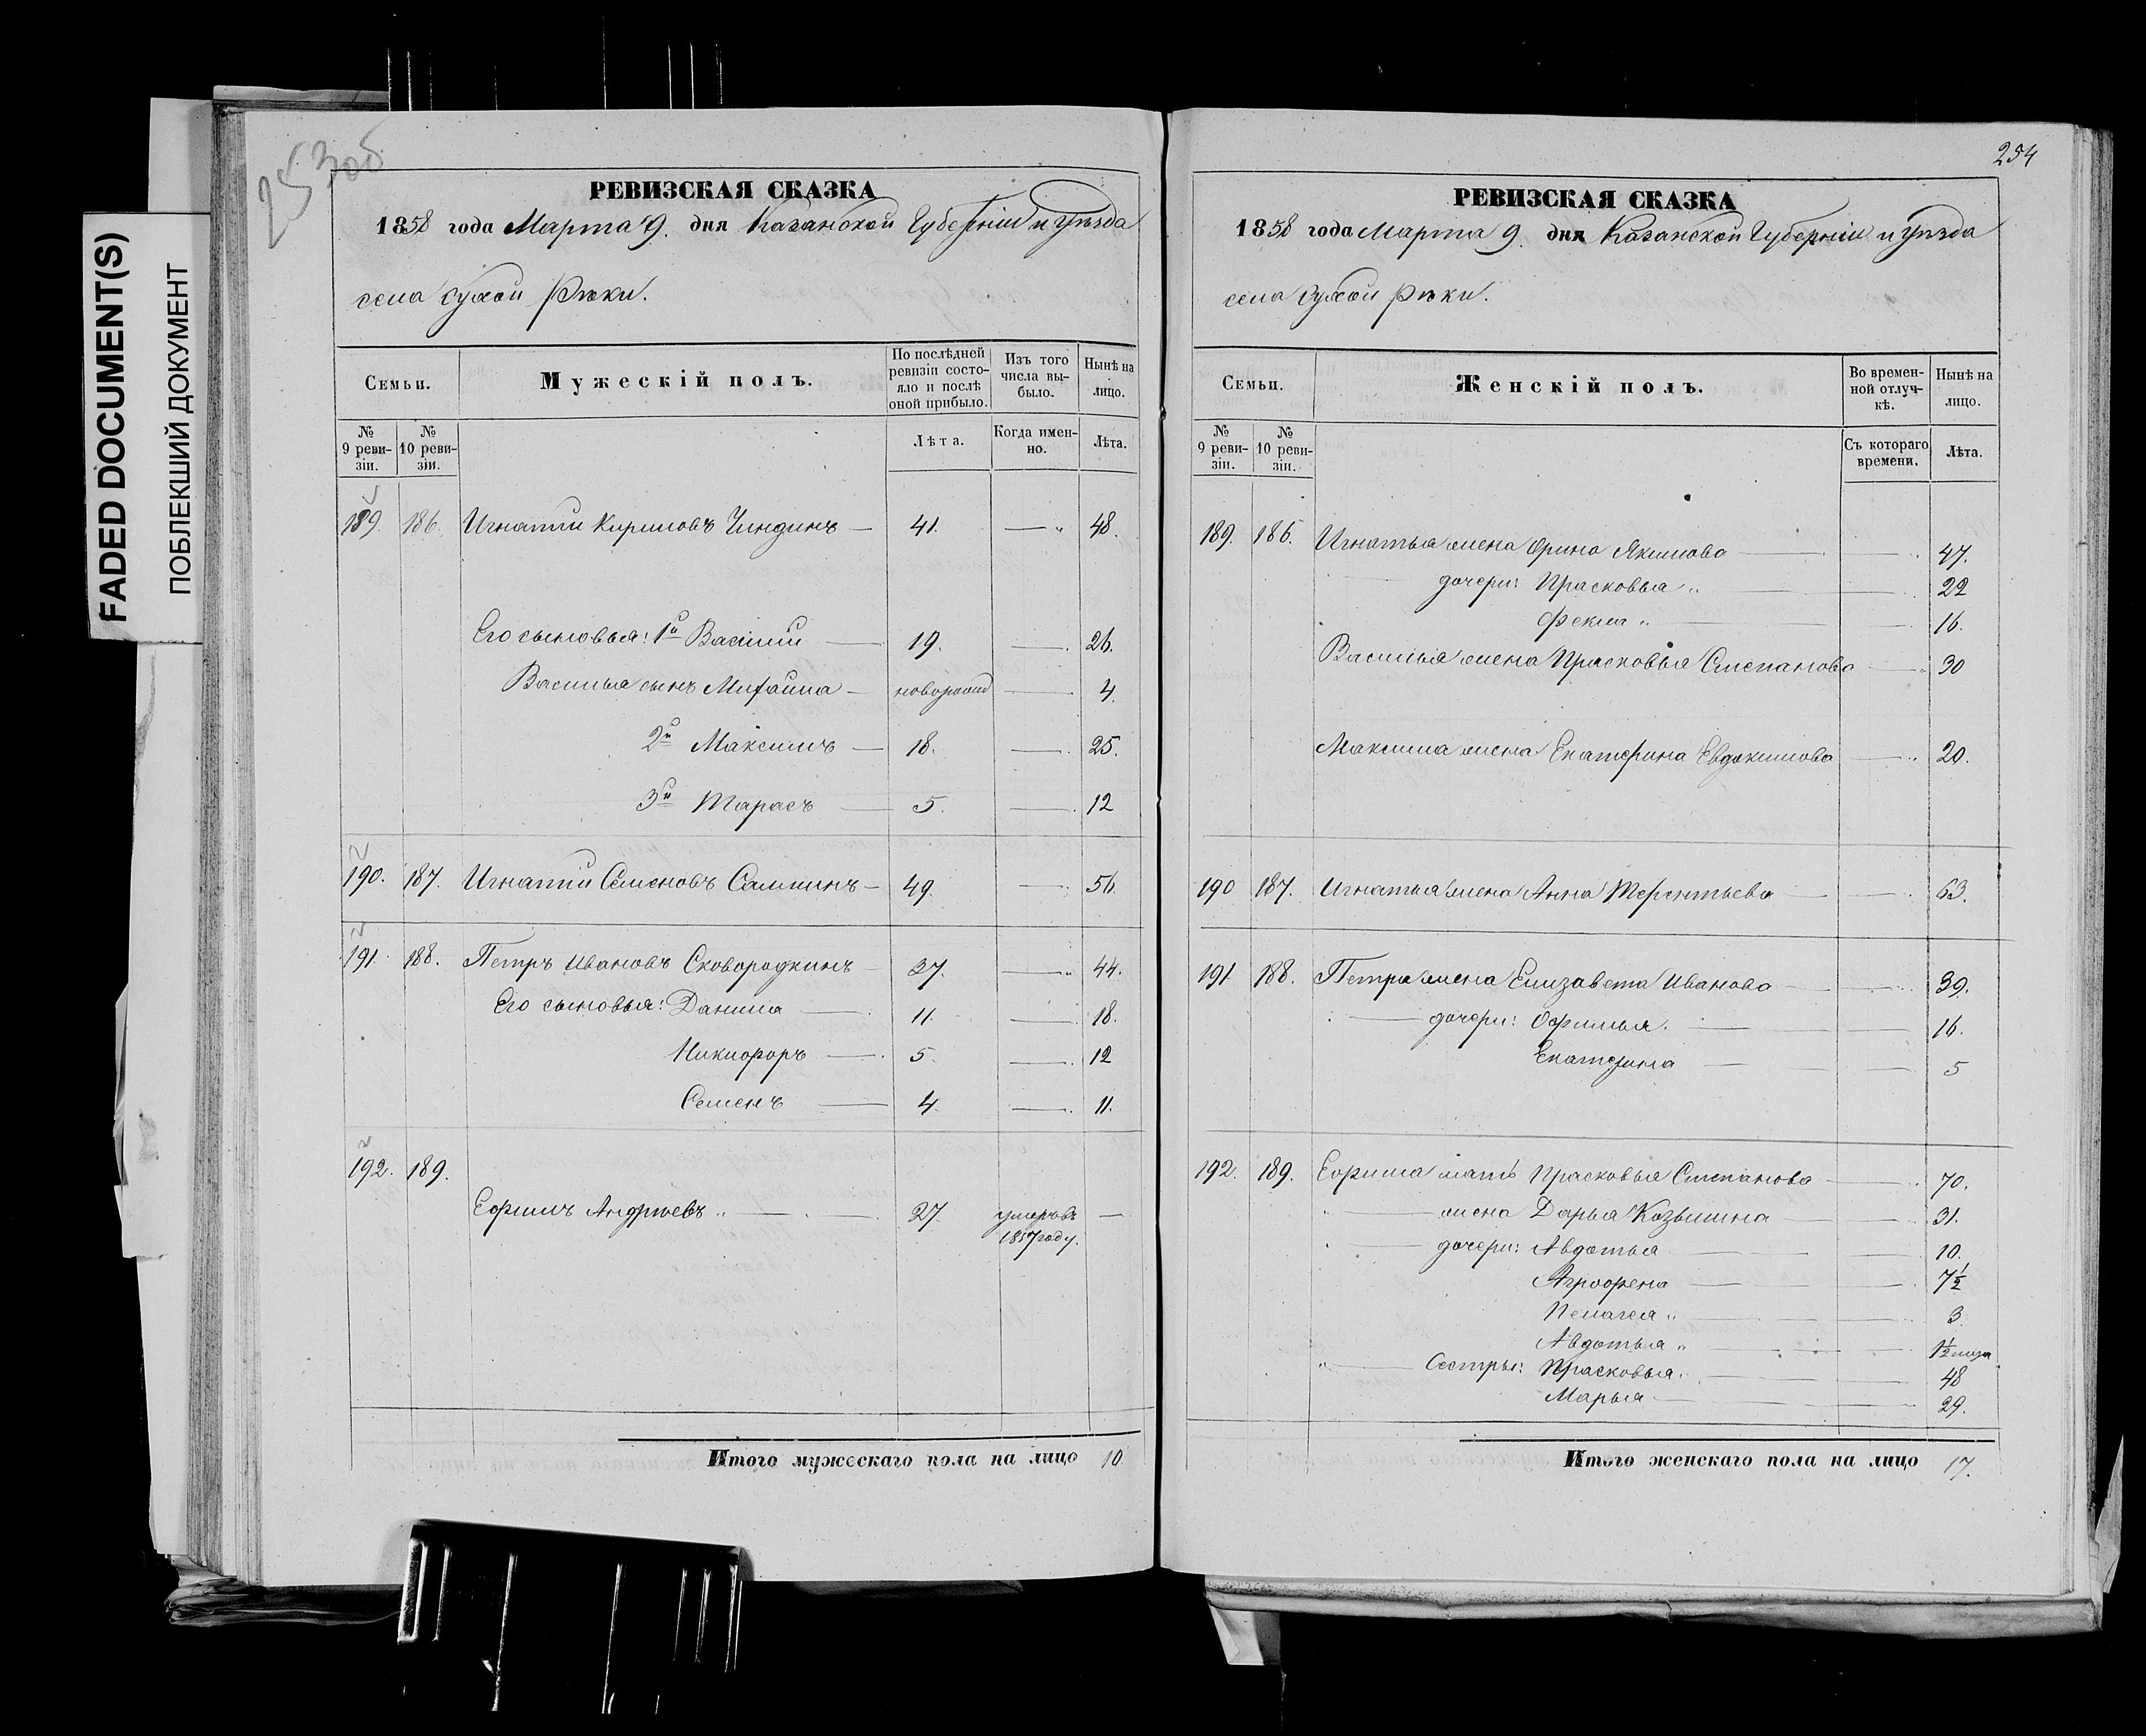 FADED DOCUMENT(S)
ПОБЛЕКШИЙ ДОКУМЕНТ
253об
РЕВИЗСКАЯ СКАЗКА
1858 года Марта 9. дня Казанской Губерніи и Уѣзда
села Сухой Рѣки.
Семьи. Мужескій полъ. По послѣдней ревизіи состояло и послѣ оной прибыло. Изъ того числа выбыло. Нынѣ на лицо.
№ 9 ревизіи. № 10 ревизіи. Лѣта. Когда именно. Лѣта.
189. 186. Игнатій Кириловъ Чиндинъ — 41. — " 48.
Его сыновья: 1й Василій — 19. — 26.
Василья сынъ Михайла — новорожд — 4.
2й Максимъ — 18. — 25.
3й Тарасъ — 5. — 12
190. 187. Игнатій Семеновъ — 49. — 56.
191. 188. Петръ Ивановъ Сковородкинъ 37. — 44.
Его сыновья: Данила — 11. — 18.
Никифоръ — 5. — 12
Семенъ — 4. — 11.
192. 189.
Ефимъ Андреевъ " — 27. умеръ въ —
1857 году.
Итого мужескаго пола на лицо 10.
254
РЕВИЗСКАЯ СКАЗКА
1858 года Марта 9. дня Казанской Губерніи и Уѣзда
села Сухой Рѣки.
Семьи. Женскій полъ. Во временной отлучкѣ. Нынѣ на лицо.
№ 9 ревизіи. № 10 ревизіи. Съ котораго времени. Лѣта.
189. 186. Игнатья жена Орина Якимова — 47.
— дочери: Прасковья " — 22
Фекла " — 16.
Василья жена Прасковья Степанова — 30
Максима жена Екатерина Евдокимова — 20.
190 187. Игнатья жена Анна Терентьева — 63.
191 188. Петра жена Елизавета Иванова — 39.
— дочери: Офимья. — 16.
Екатерина — 5
192. 189. Ефима мать Прасковья Степанова — 70.
" — жена Дарья Козьмина — 31.
" — дочери: Авдотья — 10.
Агрофена — 7½
Пелагея " — 3.
Авдотья " — ½
" — Сестры: Прасковья. — 48
Марья — 29.
Итого женскаго пола на лицо 17.